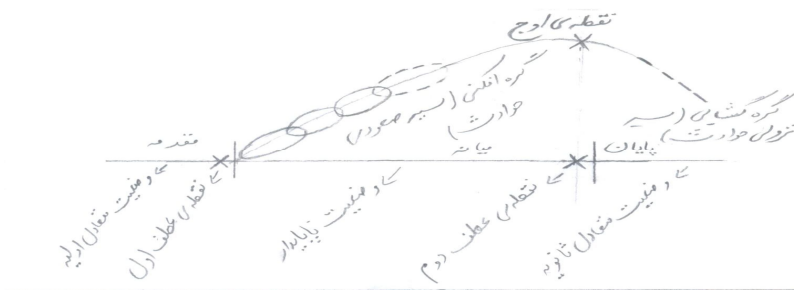 نقطه‌ی اوج
گره افکنی (سیر صعودی
حوادث)
گره گشایی (سیر
نزولی حوادث)
مقدمه
میانه
پایان
وضعیت متعادل اولیه
نقطه‌ی عطف اول
وضعیت ناپایدار
نقطه‌ی عطف دوم
وضعیت متعادل ثانویه